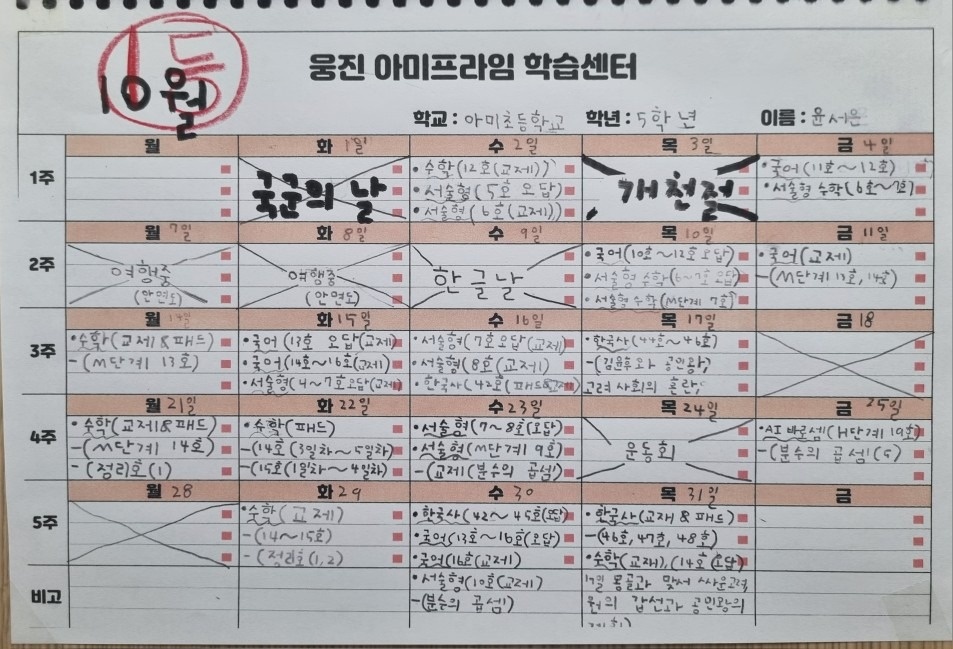 1등
10월
웅진 아미프라임 학습센터
학교 : 아미초등학교 학년 : 5학년 이름 : 윤서윤
월 화 1일 수 2일 목 3일 금 4일
1주
국군의 날
• 수학(12호(교제))
• 서술형(5호 오답)
• 서술형(6호(교제))
개천절
• 국어(11호~12호)
• 서술형 수학(6호~7호)
월 7일 화 8일 수 9일 목 10일 금 11일
2주
여행중
(안면도)
여행중
(안면도)
한글날
• 국어(10호~12호 오답)
• 서술형 수학(6~7호 오답)
• 서술형 수학(M단계 7호)
• 국어(교제)
-(M단계 13호, 14호)
월 14일 화 15일 수 16일 목 17일 금 18
3주
• 수학(교제&패드)
-(M단계 13호)
• 국어(13호 오답(교제)
• 국어(14호~16호(교제)
• 서술형(4~7호오답(교제)
• 서술형(7호오답(교제)
• 서술형(8호(교제)
• 한국사(42호(패드&교제)
• 한국사(44호~46호)
-(김윤후와 공민왕,
고려 사회의 혼란,
월 21일 화 22일 수 23일 목 24일 금 25일
4주
• 수학(교제&패드)
-(M단계 14호)
-(정리호(1)
• 수학(패드)
-(14호(3일차~5일차)
-(15호(1일차~4일차)
• 서술형(7~8호(오답)
• 서술형(M단계 9호)
-(교제(분수의 곱셈)
운동회
• AI 바로셈(H단계 19호)
-(분수의 곱셈(5)
월 28 화 29 수 30 목 31일 금
5주
• 수학(교제)
-(14~15호)
-(정리호(1,2)
• 한국사(42~45호(오답)
• 국어(13호~16호(오답)
• 국어(16호(교제)
• 한국사(교재 & 패드)
-(46호, 47호, 48호)
• 수학(교재),(14호(오답)
비고
• 서술형(10호(교제)
-(분수의 곱셈)
17일 몽골과 맞서 싸운고려,
원의 간섭과 공민왕의